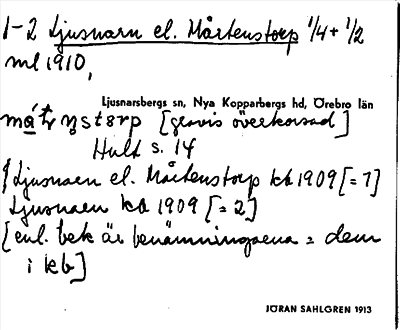 1-2 Ljusnarn el. Mårtenstorp 1/4 + 1/2
ml 1910,
Ljusnarsbergs sn, Nya Kopparbergs hd, Örebro län
[gravis överkorsad]
Hult s. 14
Ljusnaen el. Mårtenstorp kb 1909 [= 1]
Ljusnaen kb 1909 [= 2]
[enl. bek är benämningarna = dem
i kb]
JÖRAN SAHLGREN 1913